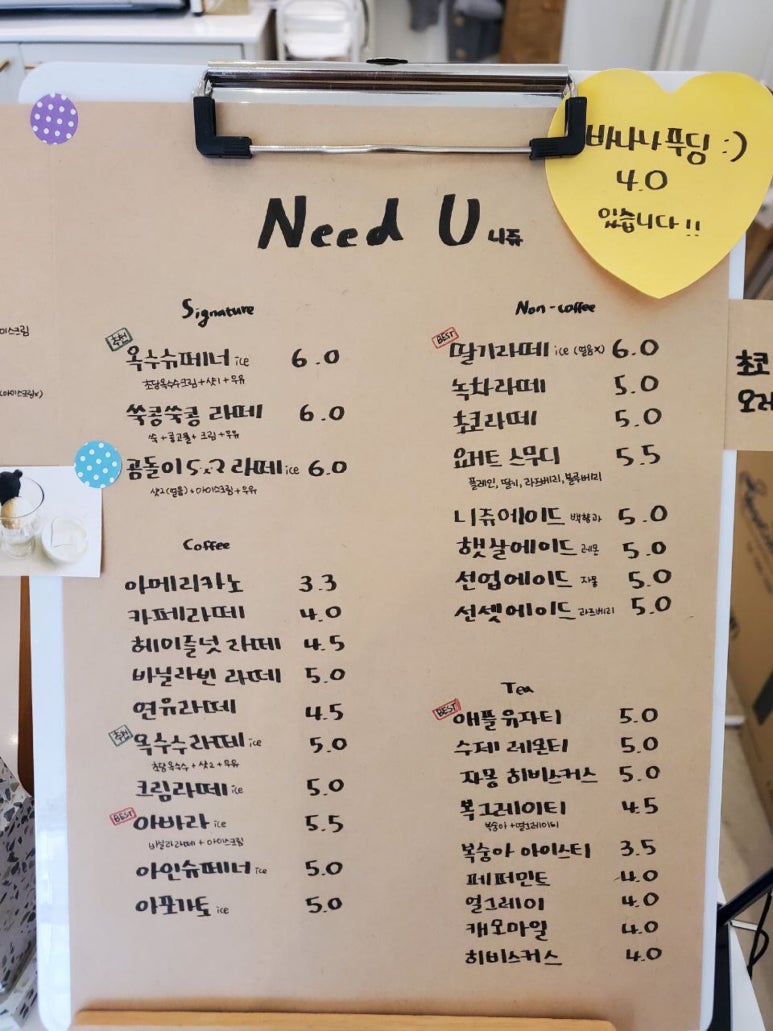 바나나푸딩 :)
4.0
있습니다!!
Need U 니쥬
Signature
추천
옥수슈페너 ice 6.0
초당옥수수크림+샷1+우유
쑥콩쑥콩 라떼 6.0
쑥+콩고물+크림+우유
곰돌이 라떼 ice 6.0
샷2(얼음)+아이스크림+우유
Coffee
아메리카노 3.3
카페라떼 4.0
헤이즐넛 라떼 4.5
바닐라빈 라떼 5.0
연유라떼 4.5
추천
옥수수라떼 ice 5.0
초당옥수수+샷2+우유
크림라떼 ice 5.0
BEST
아바라 ice 5.5
바닐라라떼+아이스크림
아인슈페너 ice 5.0
아포가토 ice 5.0
Non-coffee
BEST
딸기라떼 ice (얼음x) 6.0
녹차라떼 5.0
초코라떼 5.0
요거트 스무디 5.5
플레인, 딸기, 라즈베리, 블루베리
니쥬에이드 백향과 5.0
햇살에이드 레몬 5.0
선업에이드 자몽 5.0
선셋에이드 라즈베리 5.0
Tea
BEST
애플유자티 5.0
수제 레몬티 5.0
자몽 히비스커스 5.0
복그레이티 4.5
복숭아+얼그레이티
복숭아 아이스티 3.5
페퍼민트 4.0
얼그레이 4.0
캐모마일 4.0
히비스커스 4.0
이스크림
(아이스크림x)
초코
오레